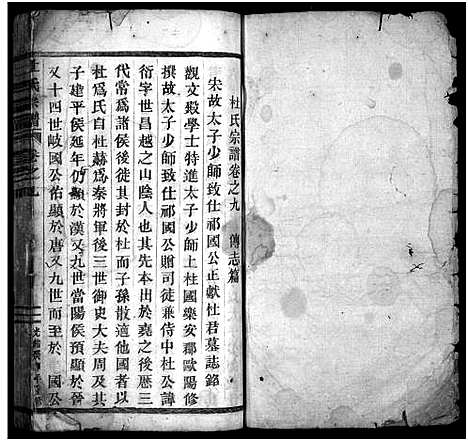 杜氏宗譜卷之九　傳志篇
宋故太子少師致仕祁國公正獻杜君墓誌銘
觀文殿學士特進太子少師上柱國樂安郡歐陽修
撰故太子少師致仕祁國公贈司徒兼侍中杜公諱
衍字世昌越之山陰人也其先本出於堯之後歷三
代常為諸侯後徙其封於杜而子孫散適他國者以
杜為氏自杜赫為秦將軍後三世御史大夫周及其
子建平侯延年仍顯於漢又九世當陽侯預顯於晉
又十四世岐國公佑顯於唐又九世而至於　國公
杜氏宗譜　卷之九